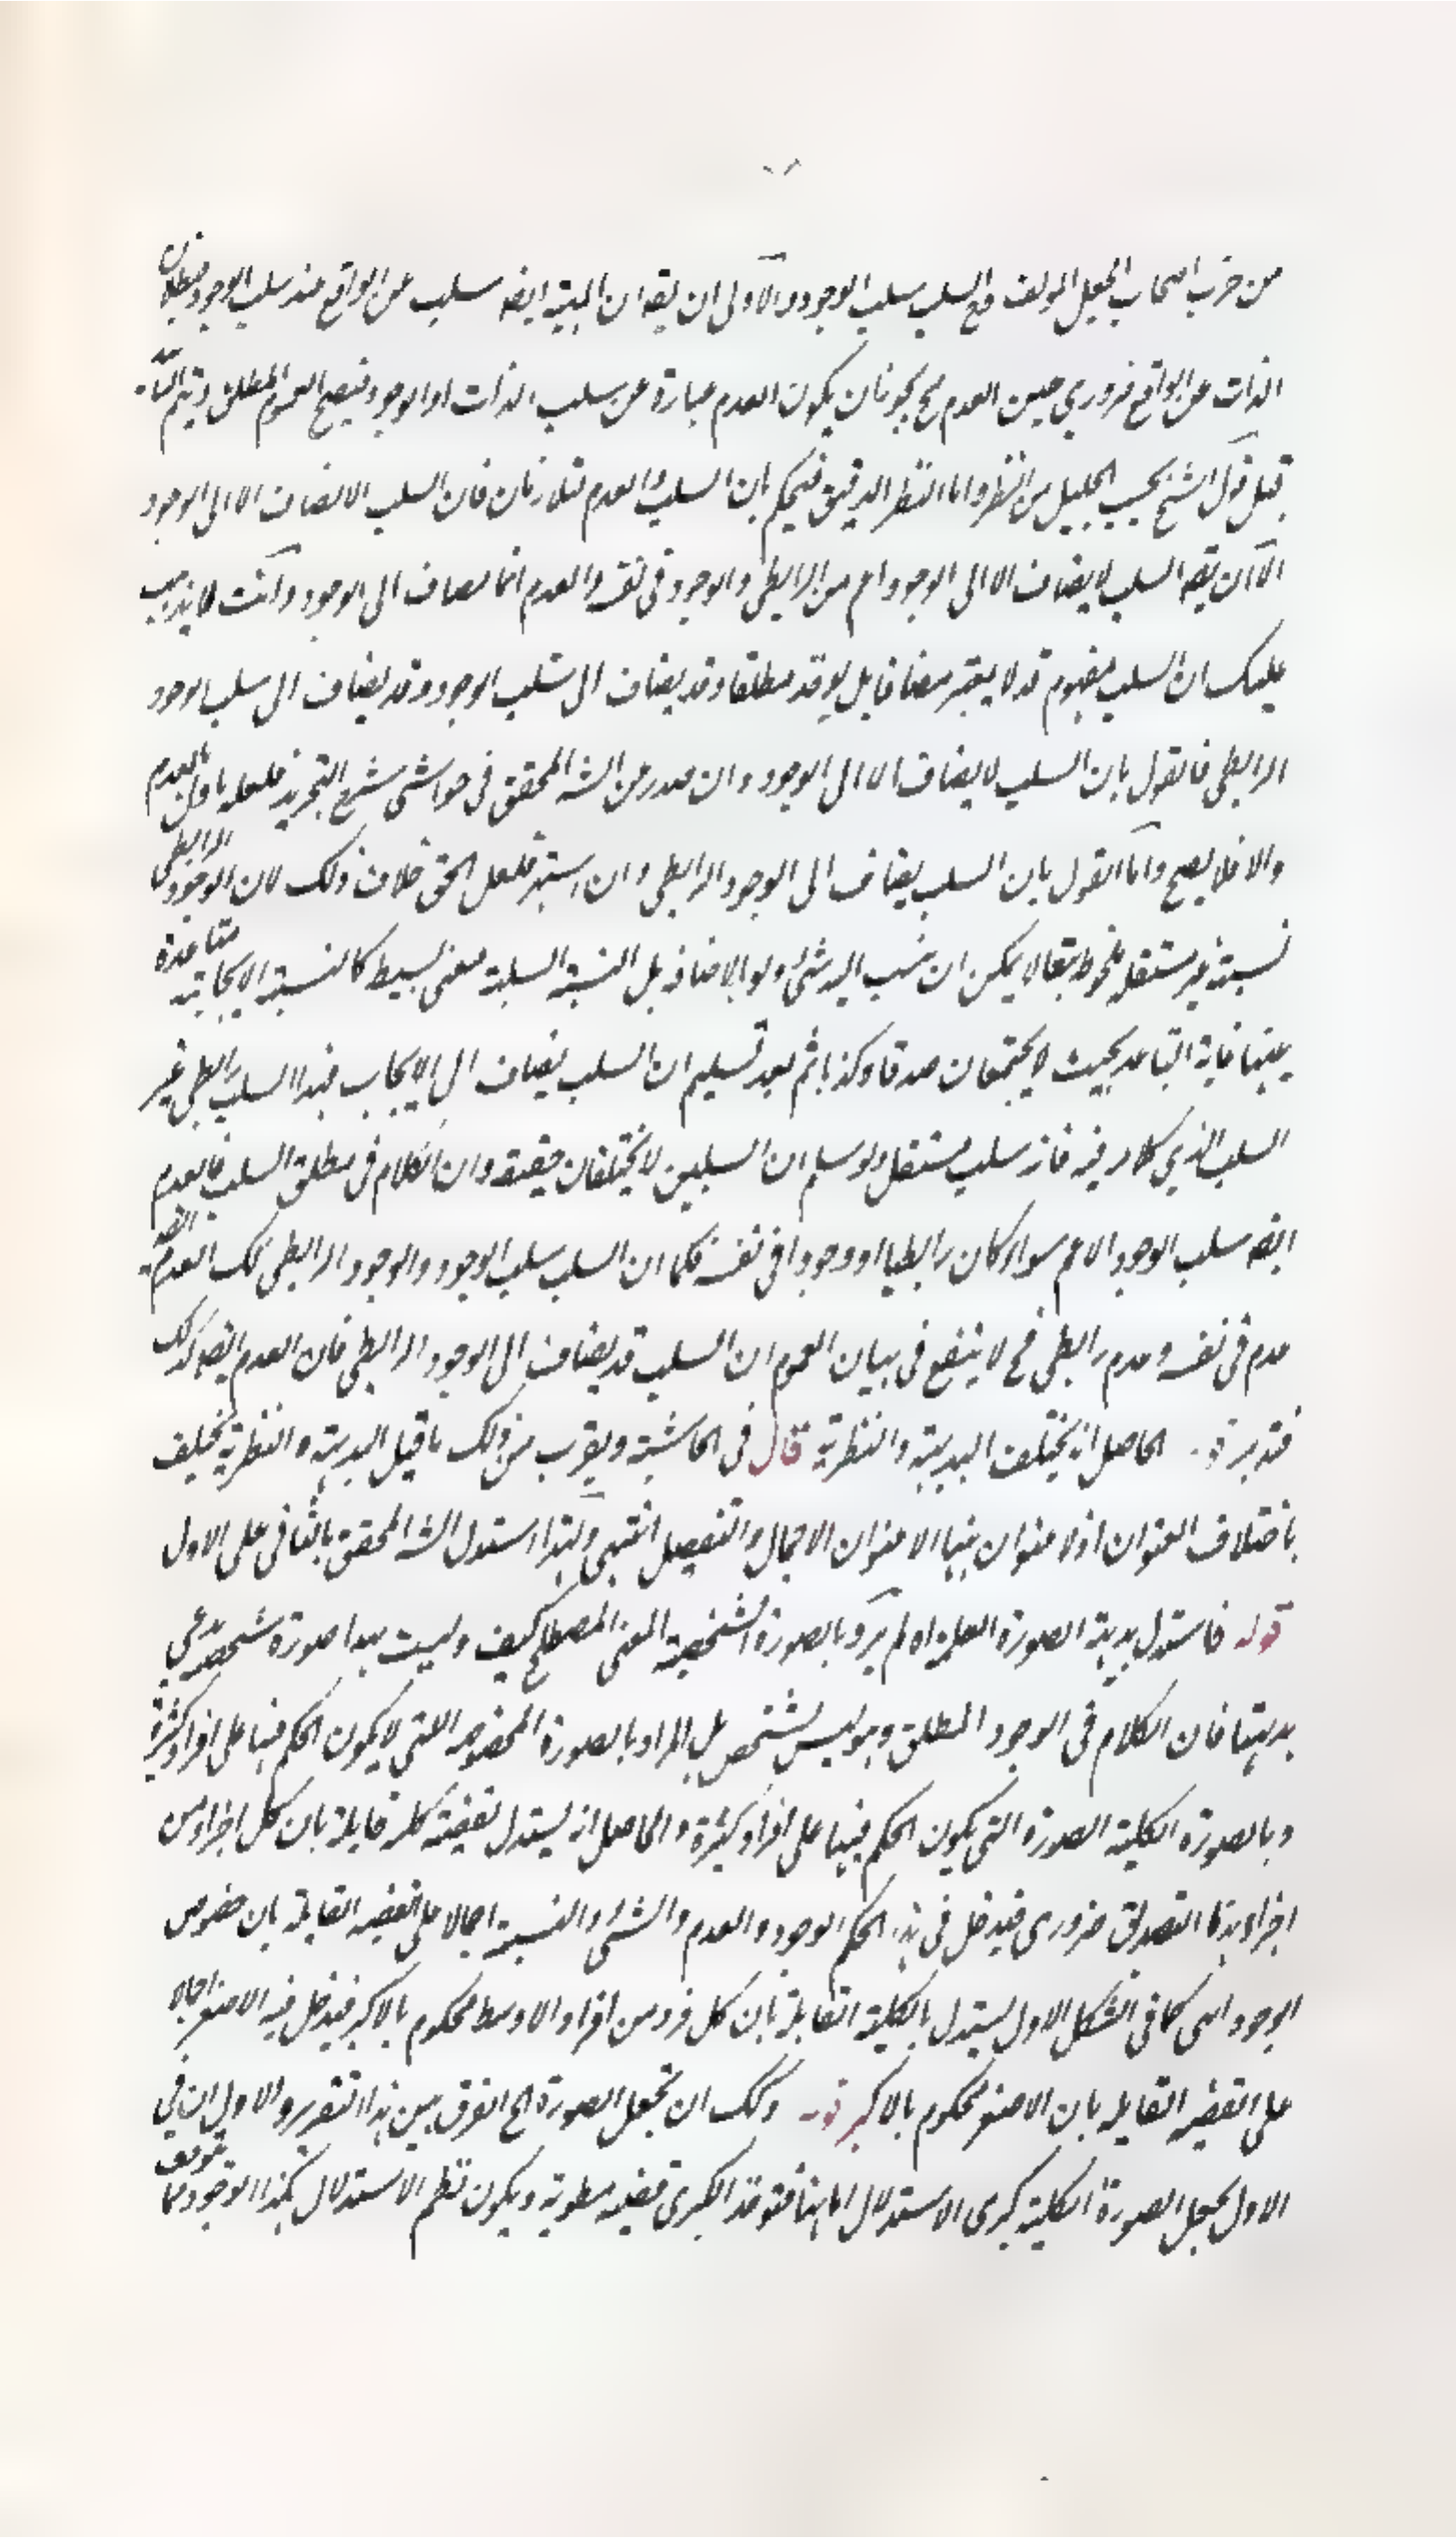 من حزب اصحاب الجعل المولف مع السلب سلب الوجود والاولى ان يقه ان المهية ايضه سلب عن الواقع عند سلب الوجود فبطلان
الذات عن الواقع ضروري حين العدم فح يجوز ان يكون العدم عبارة عن سلب الذات او الوجود فيصح العموم المطلق ويتم
قبل قول الشيخ بحسب الجليل من النظر واما النظر الدقيق فيحكم بان السلب والعدم متلازمان فان السلب لا يضاف الا الى الوجود
الا ان يقه السلب لا يضاف الا الى الوجود اعم من الرابطى والوجود فى نفسه والعدم انما يضاف الى الوجود وانت لا يذهب
عليك ان السلب مفهوم قد لا يعتبر مضافا بل يوخذ مطلقا وقد يضاف الى سلب الوجود وقد يضاف الى سلب الوجود
الرابطى فالقول بان السلب لا يضاف الا الى الوجود وان صدر عن الشه المحقق فى حواشى شرح التجريد فلعله ماول بالعدم
والا فلا يصح واما القول بان السلب يضاف الى الوجود الرابطى وان اشتهر فلعل الحق خلاف ذلك لان الوجود الرابطى
نسبة غير مستقله ملحوظ تبعا لا يمكن ان ينسب اليه شئ ولو بالاضافة بل النسبة السلبية معنى بسيط كالنسبة الايجابية متباعدة
بينها غاية التباعد بحيث لا يجتمعان صدقا وكذبا ثم بعد تسليم ان السلب يضاف الى الايجاب فهذا السلب رابطى غير
السلب الذي كلامه فيه فانه سلب مستقل ولو سلم ان السلبين لا يختلفان حقيقة وان الكلام فى مطلق السلب فالعدم
ايضه سلب الوجود الاعم سواء كان رابطيا او وجودا فى نفسه فكما ان السلب سلب الوجود والوجود الرابطى كك العدم ايضه
عدم فى نفسه وعدم رابطى فح لا ينفع فى بيان العموم ان السلب قد يضاف الى الوجود الرابطى فان العدم ايضه كذلك
فتدبر قوله الحاصل انه يختلف البديهية والنظرية قال فى الحاشية ويقرب من ذلك ما قيل البديهية والنظرية يختلف
باختلاف العنوان اذ لا عنوان بينها الا عنوان الاجمال والتفصيل انتهى ولهذا استدل الشه المحقق بالثانى على الاول
قوله فاستدل بديهة الصورة العلمية اه لم يرد بالصورة الشخصية المعنى المصطلح كيف وليست ههنا صورة شخصية يدعى
بديهتها فان الكلام فى الوجود المطلق وهو ليس بشخص بل المراد بالصورة المخصوصه التي لا يكون الحكم فيها على افراد كثيرة
وبالصورة الكلية الصورة التى يكون الحكم فيها على افراد كثيرة والحاصل انه يستدل بقضية كلية قايلة بان كل اجزاء من
اجزاء هذا التصديق ضرورى فيدخل فى هذا الحكم الوجود والعدم والشئ والنسبة اجمالا على القضيه القايلة بان خصوص
الوجود اهى كما فى الشكل الاول يستدل بالكلية القايلة بان كل فرد من افراد الاوسط محكوم بالاكبر فيدخل فيه الاصغر اجمالا
على القضيه القايله بان الاصغر محكوم بالاكبر قوله ولك ان تجعل الصورة الخ الفرق بين هذا التقرير والاول ان فى
الاول يجعل الصورة الكلية كبرى الاستدلال اما ههنا فتوخذ الكبرى قضية مطوية ويكون نظم الاستدلال هكذا الوجود مما يتوقف